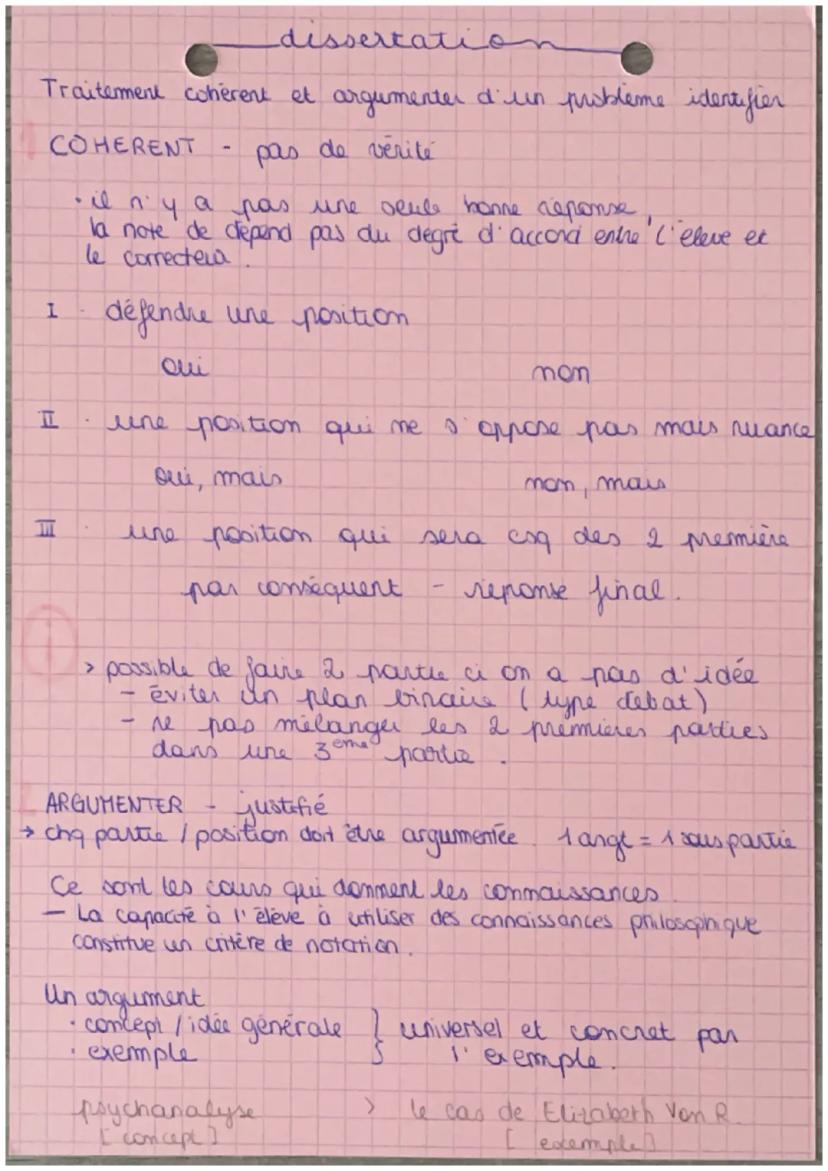 dissertation
Traitement cohérent et argumenter d'un problème identifier
1 COHERENT - pas de vérité
• il n'y a pas une seule bonne réponse,
la note de dépend pas du degré d'accord entre l'élève et
le correcteur.
I - défendre une position
oui non
II - une position qui ne s'oppose pas mais nuance
oui, mais non, mais
III - une position qui sera csq des 2 première
par conséquent - réponse final.
i
> possible de faire 2 partie ci on a pas d'idée
- éviter un plan binaire (type debat)
- ne pas mélanger les 2 premières parties
dans une 3eme partie.
2 ARGUMENTER - justifié
→ chq partie / position doit être argumentée. 1 argt = 1 sous partie
Ce sont les cours qui donnent les connaissances.
- La capacité à l'élève à utiliser des connaissances philosophique
constitue un critère de notation.
Un argument
• concept / idée générale } universel et concret par
• exemple l'exemple.
psychanalyse > le cas de Elizabeth Von R.
[concept] [exemple]